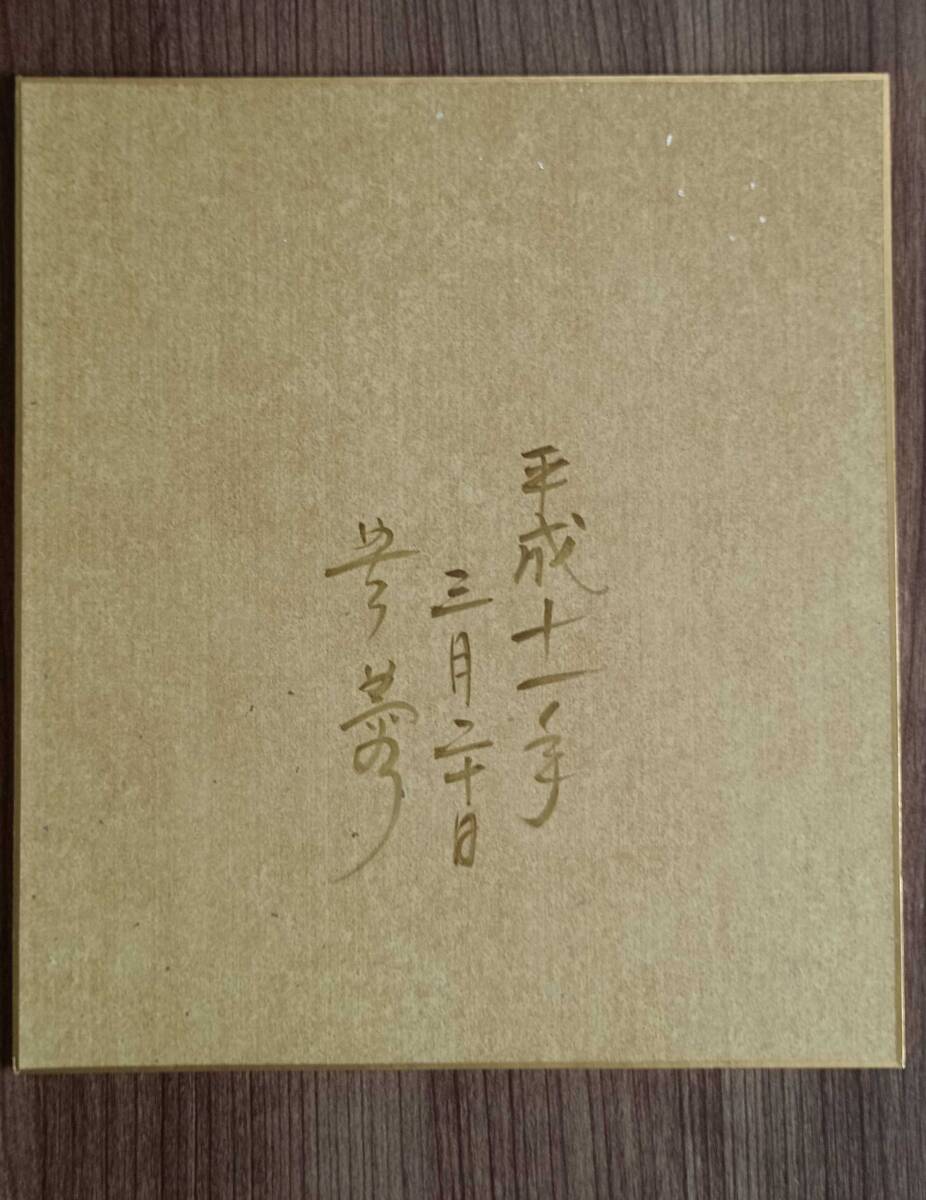 平成十一年
三月二十日